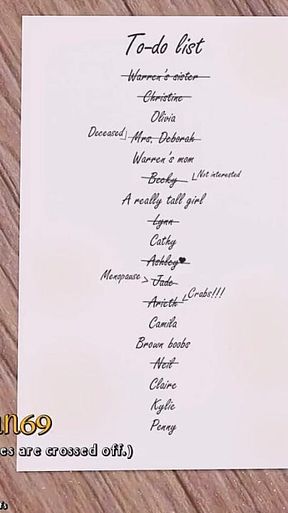 To-do list
Warren's sister
Christine
Olivia
Deceased Mrs. Deborah
Warren's mom
Becky Not interested
A really tall girl
Lynn
Cathy
Ashley♥
Menopause > Jade
Arieth Crabs!!!
Camila
Brown boobs
Neil
Claire
Kylie
Penny
un69
es are crossed off.)